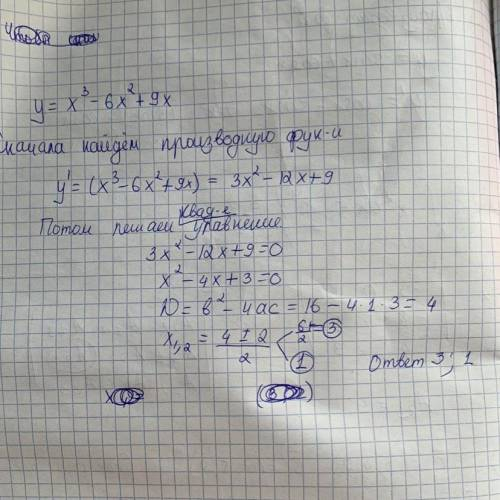 y = x³ - 6x² + 9x
Сначала найдём производную фук-и
y' = (x³-6x²+9x) = 3x² - 12x + 9
Потом решаем квад-е уравнение
3x² - 12x + 9 = 0
x² - 4x + 3 = 0
D = b² - 4ac = 16 - 4·1·3 = 4
x₁,₂ = (4 ± 2)/2 6/2 = 3
1
Ответ 3; 1